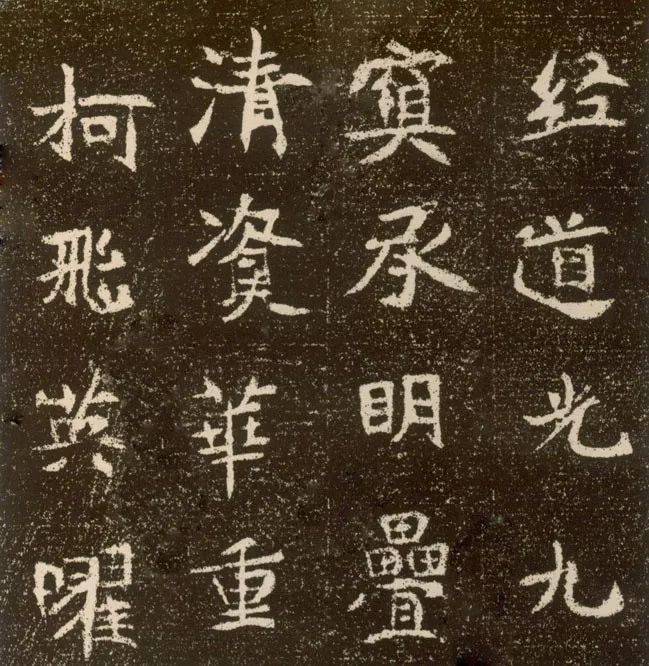 经道光九
寘承眀疊
清資華重
柯飛英曜